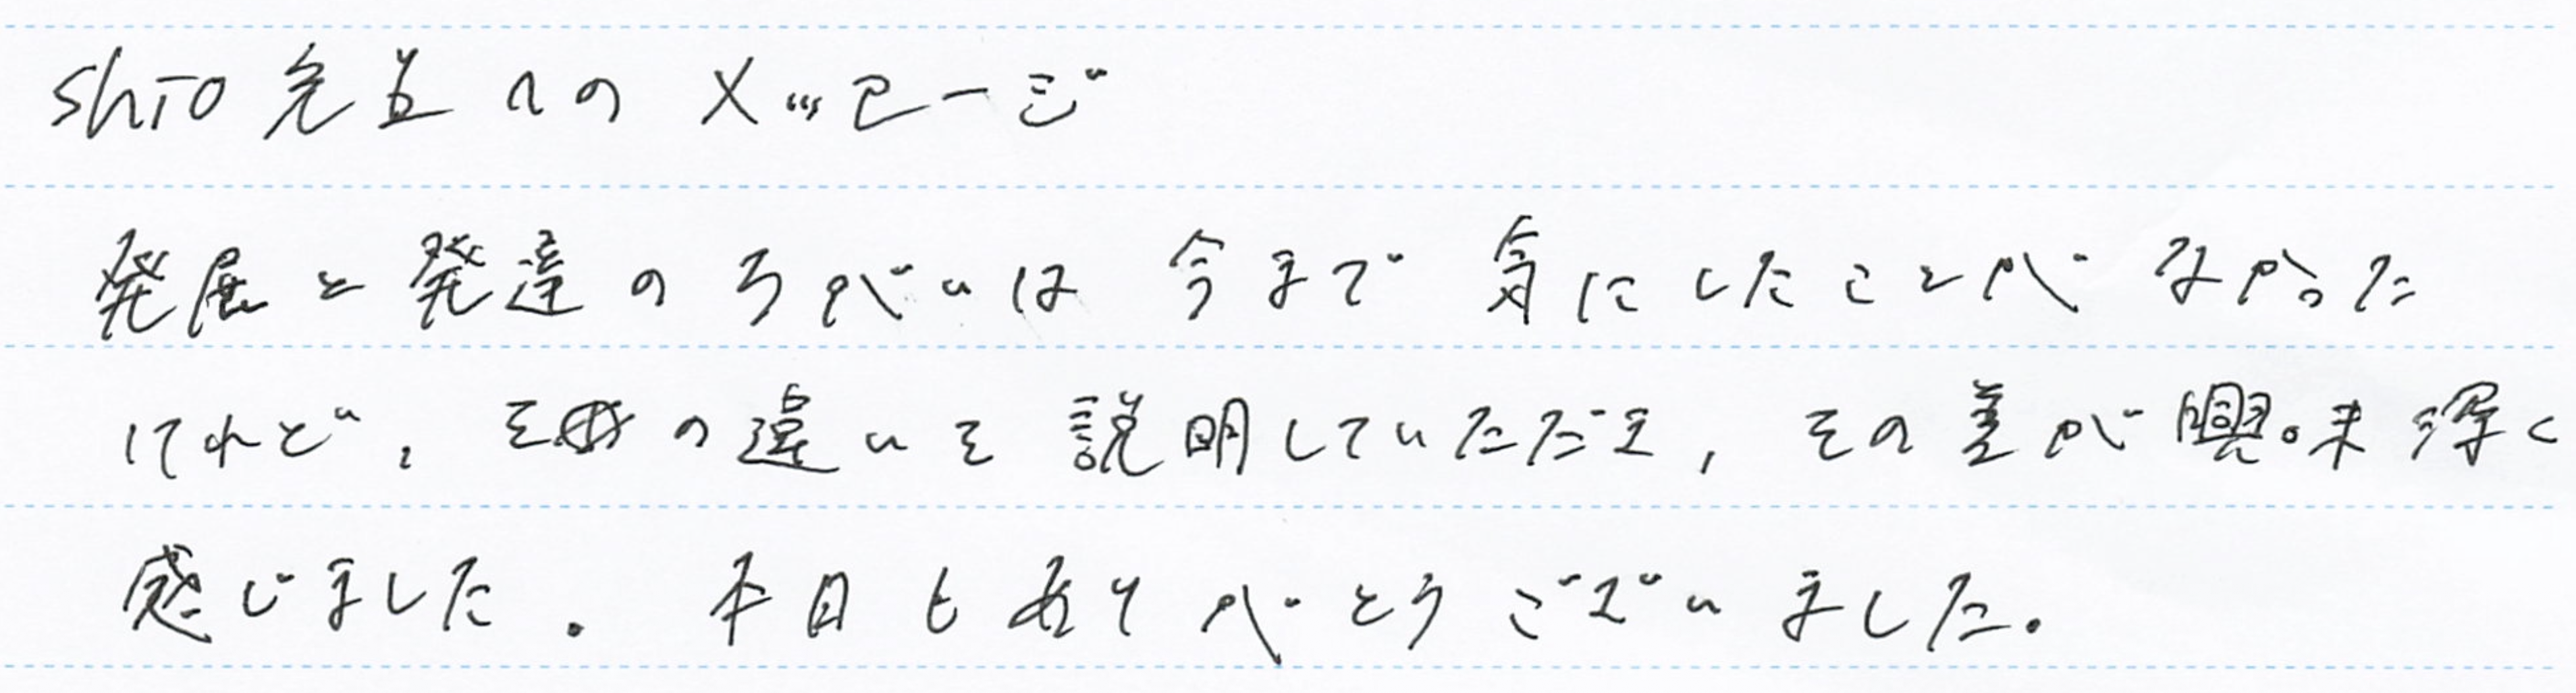 Shio先生へのメッセージ
発展と発達のちがいは今まで気にしたことがなかった
けれど、その違いを説明していただき、その差が興味深く
感じました。本日もありがとうございました。